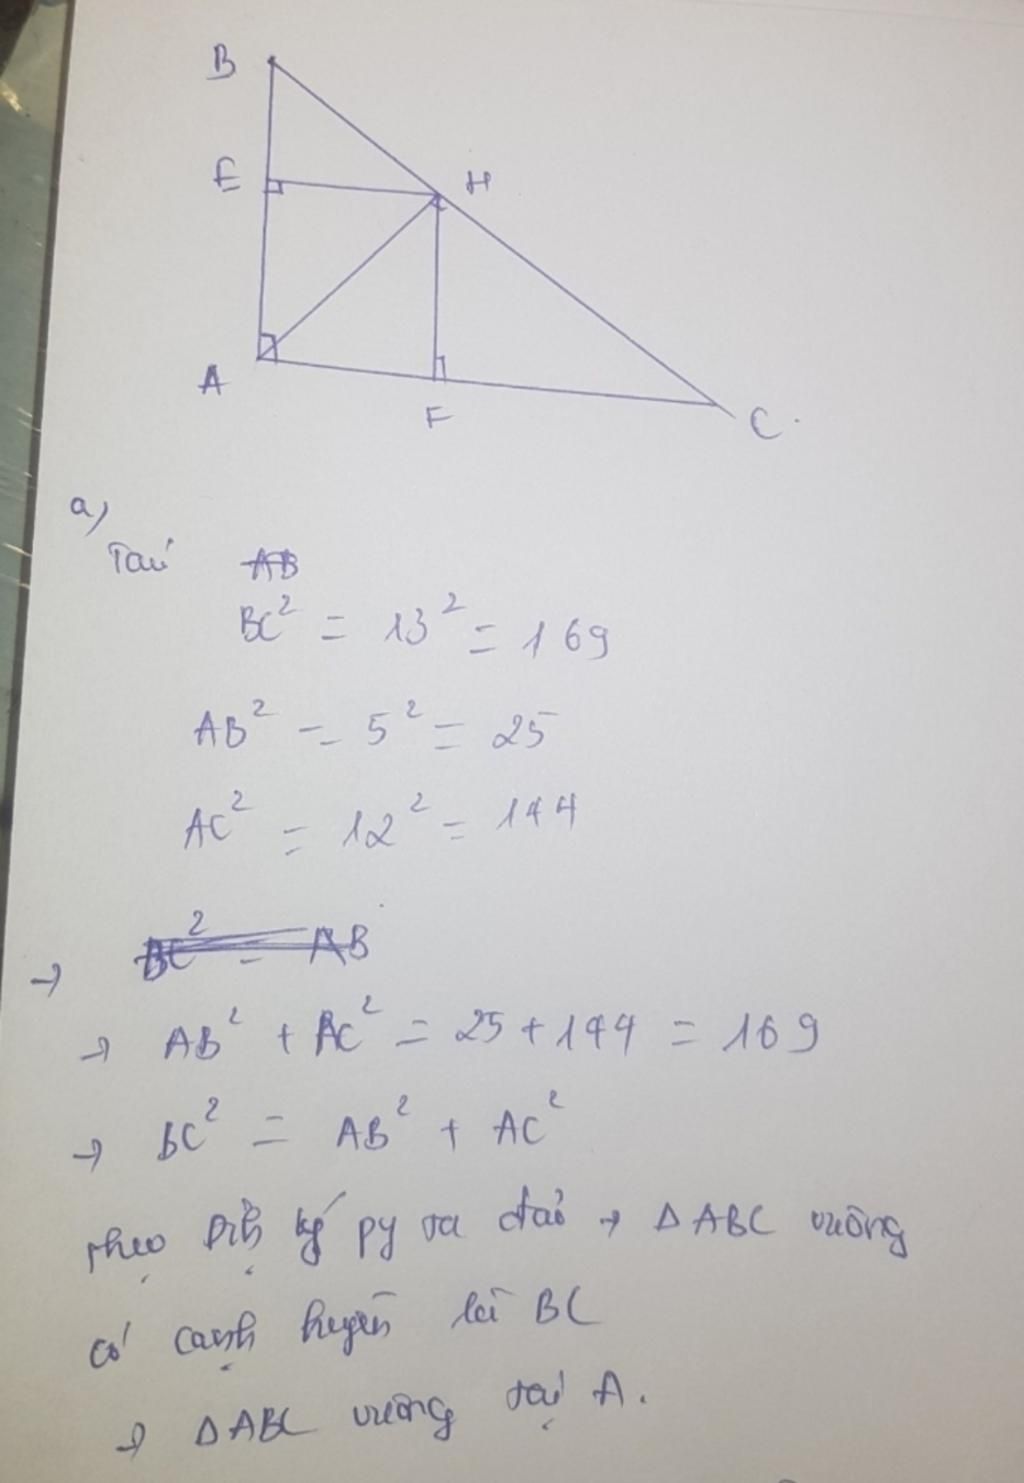 B
E
H
A
F
C
a)
Ta có AB
BC² = 13² = 169
AB² = 5² = 25
AC² = 12² = 144
→ BC² = AB
→ AB² + AC² = 25 + 144 = 169
→ BC² = AB² + AC²
Theo Định lý py ta đảo → ΔABC vuông
có cạnh huyền là BC
→ ΔABC vuông tại A.